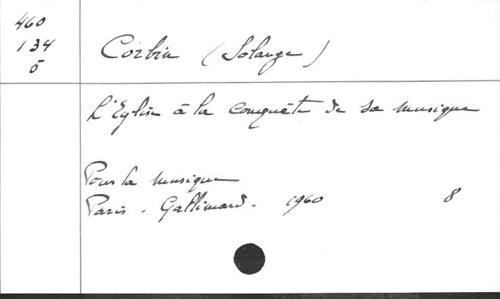 460
134
5
Corbin (Solange)
L'Eglise à la conquête de sa musique
Pour la musique
Paris. Gallimard. 1960 8